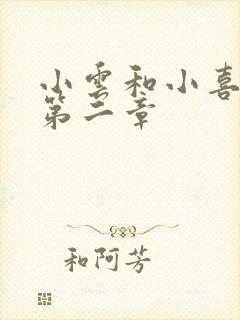 小雲和小喜
第二章
和阿芳